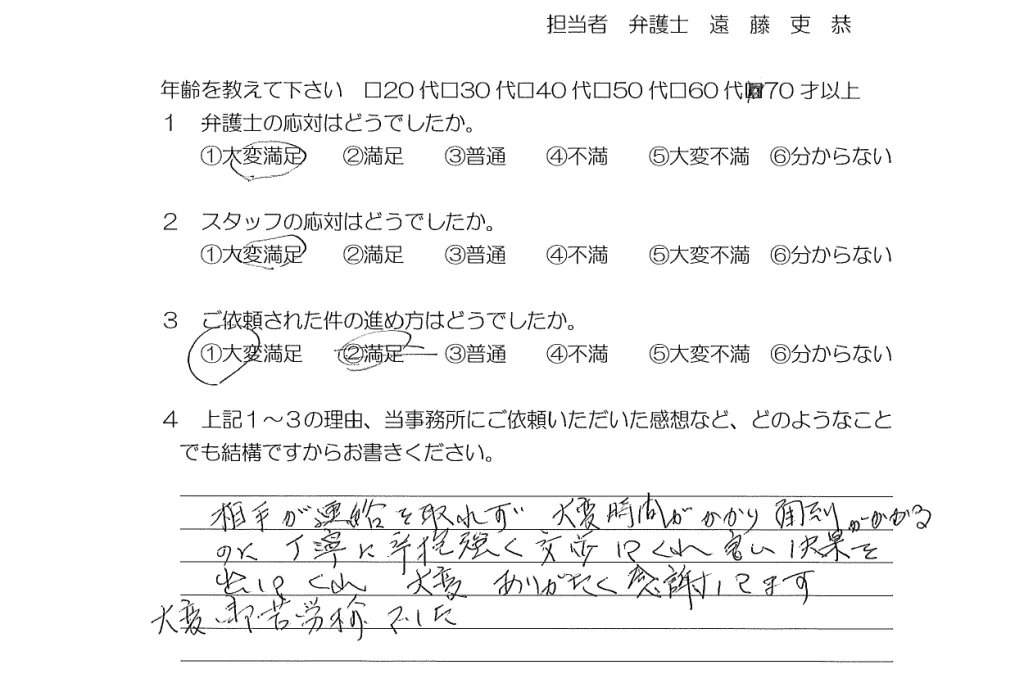 担当者 弁護士 遠 藤 吏 恭
年齢を教えて下さい □20代□30代□40代□50代□60代■70才以上
1 弁護士の応対はどうでしたか。
①大変満足 ②満足 ③普通 ④不満 ⑤大変不満 ⑥分からない
2 スタッフの応対はどうでしたか。
①大変満足 ②満足 ③普通 ④不満 ⑤大変不満 ⑥分からない
3 ご依頼された件の進め方はどうでしたか。
①大変満足 ②満足 ③普通 ④不満 ⑤大変不満 ⑥分からない
4 上記1~3の理由、当事務所にご依頼いただいた感想など、どのようなこと
でも結構ですからお書きください。
相手が連絡を取れず 大変時間がかかり 面倒がかかる
のに 丁寧に辛抱強く 交渉してくれ 良い結果を
出してくれ 大変 ありがたく感謝してます
大変 御苦労様でした